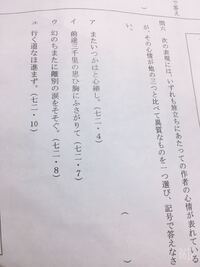 で答え
問六 次の表現には、いずれも旅立ちにあたっての作者の心情が表れている
が、その心情が他の三つと比べて異質なものを一つ選び、記号で答えなさ
い。
（ ）
ア またいつかはと心細し。（七二・4）
イ 前途三千里の思ひ胸にふさがりて（七二・7）
ウ 幻のちまたに離別の涙をそそぐ。（七二・8）
エ 行く道なほ進まず。（七二・10）